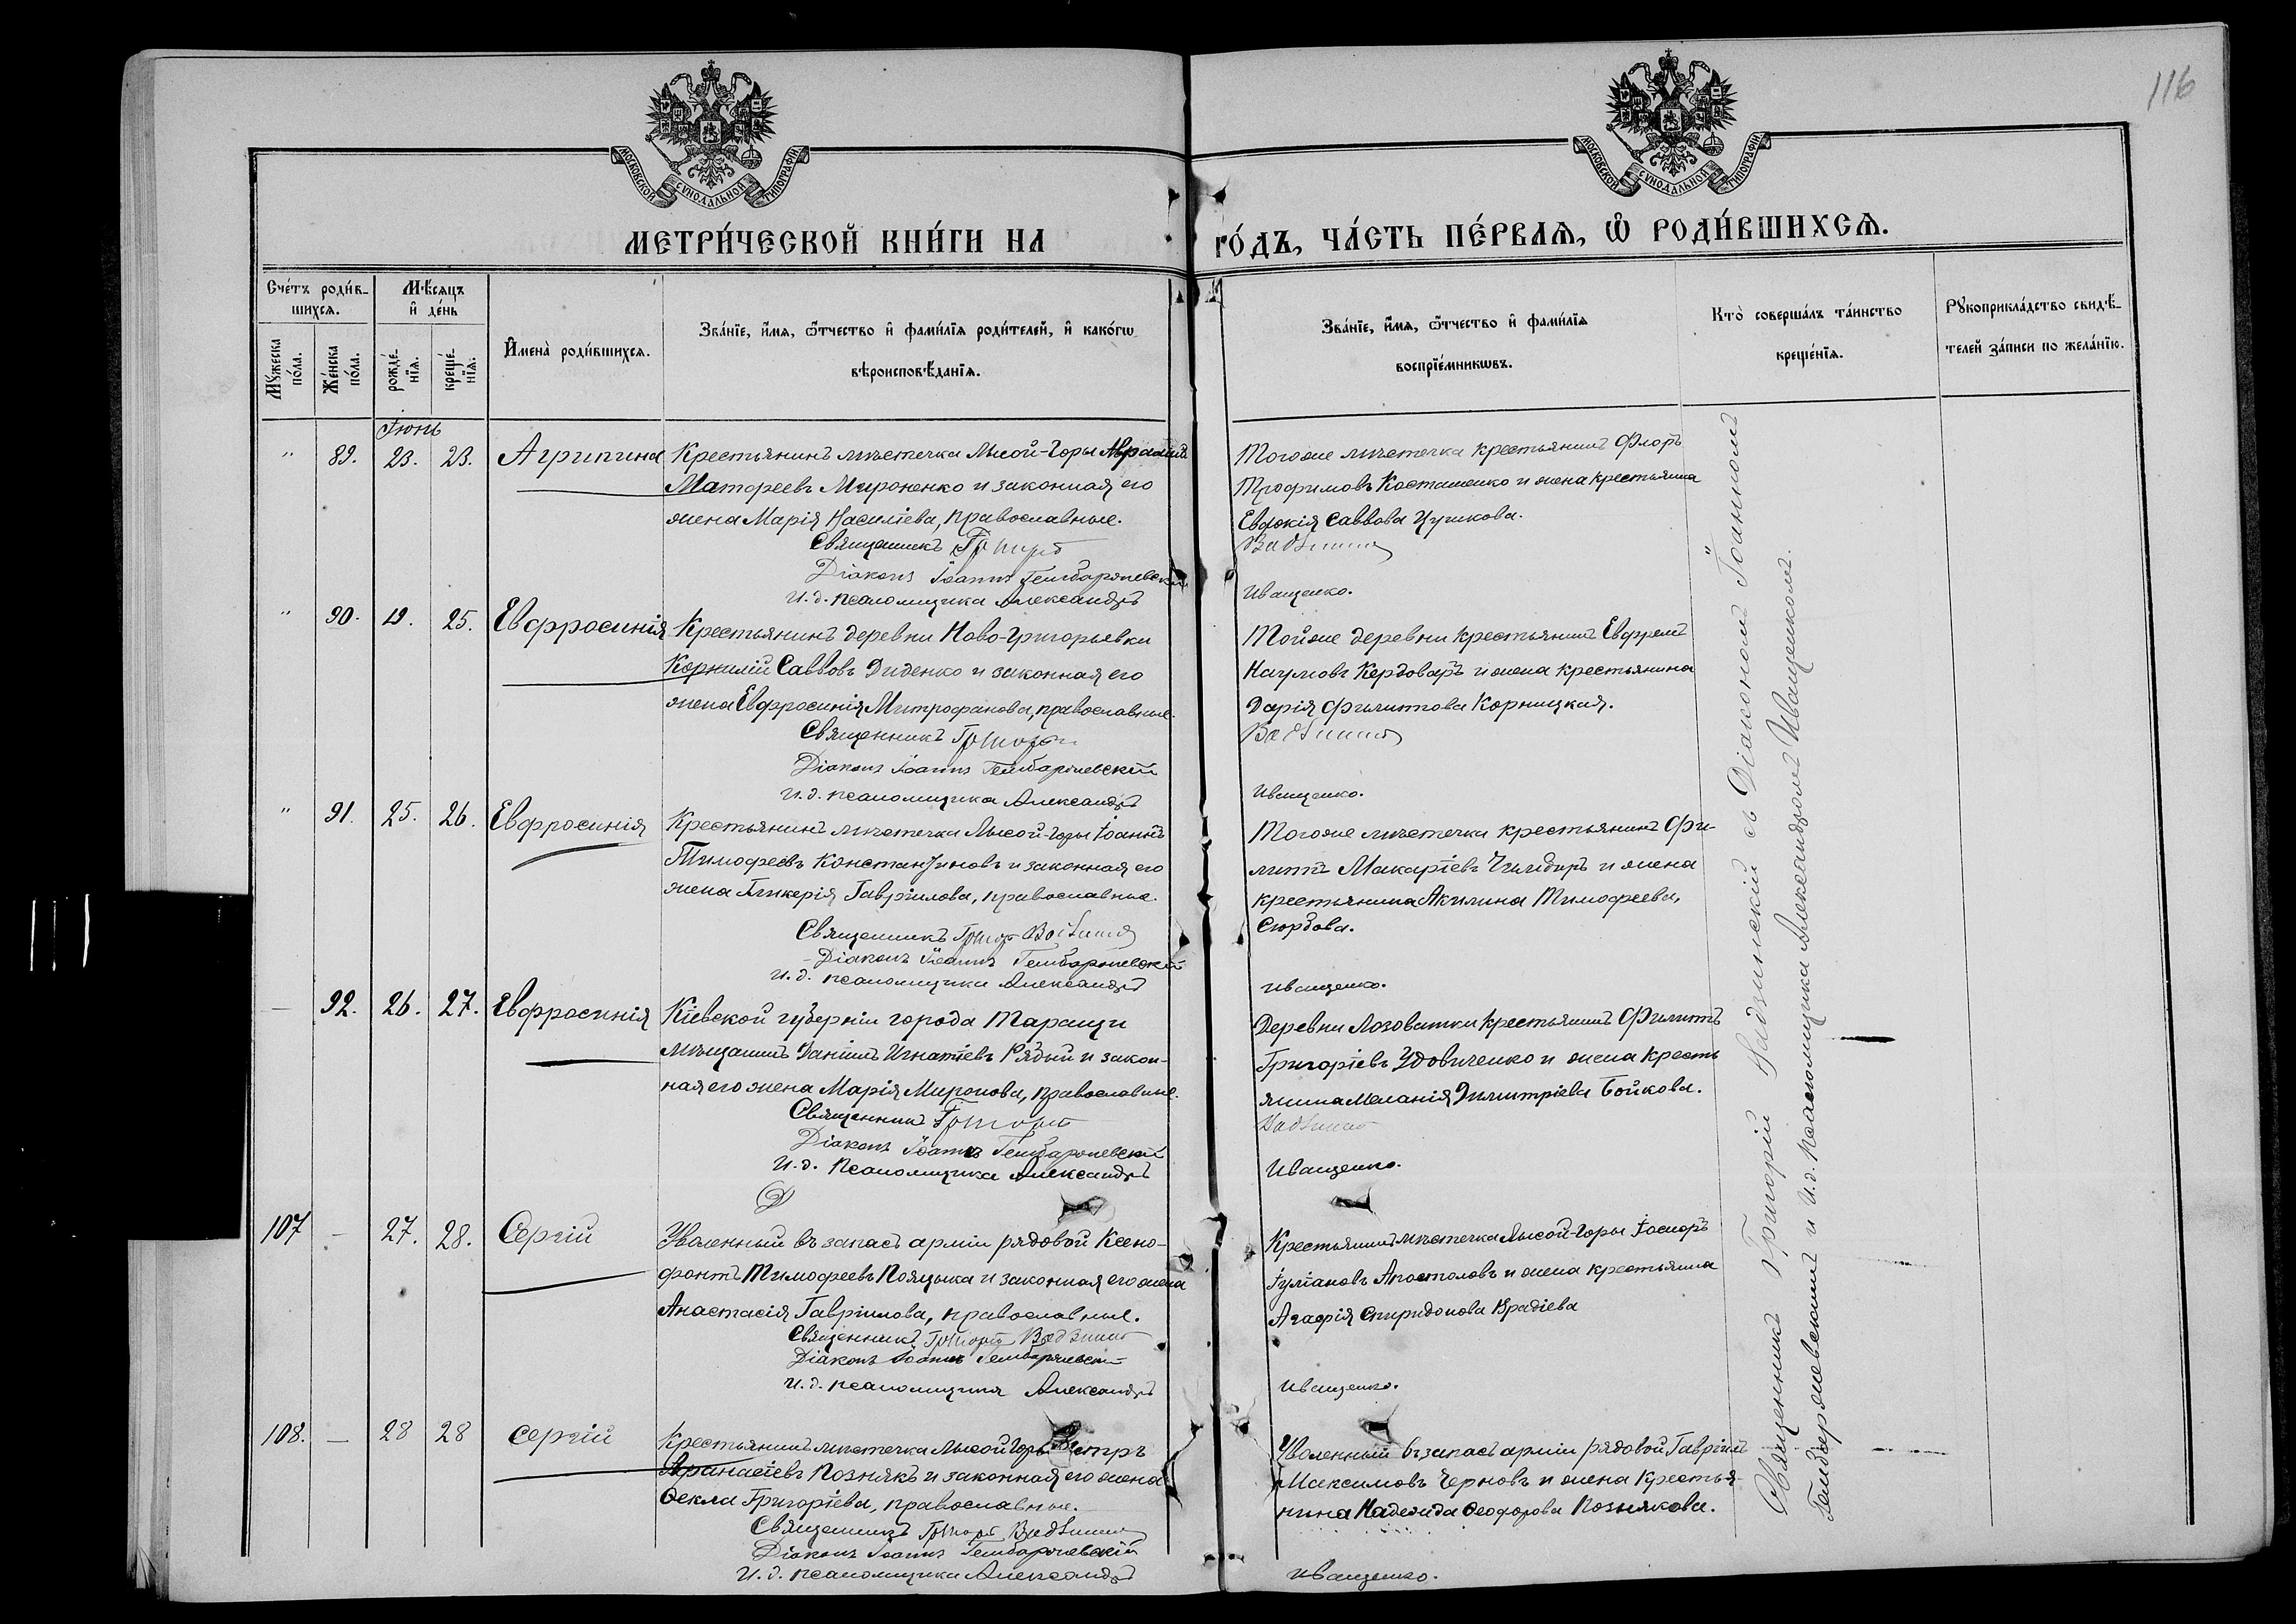 116
МОСКОВСКОЙ СѴНОДАЛЬНОЙ ТИПОГРАФІИ
МОСКОВСКОЙ СѴНОДАЛЬНОЙ ТИПОГРАФІИ
МЕТРИ́ЧЕСКОЙ КНИ́ГИ НА
ГО́ДЪ, ЧА́СТЬ ПЕ́РВАЯ, Ѡ РОДИ́ВШИХСЯ.
Сче́тъ роди́в-
шихся.
Мѣ́сяцъ
и҆ де́нь
Мꙋ́жеска
по́ла.
Же́нска
по́ла.
рожде́-
нїя.
креще́-
нїя.
И҆мена̀ роди́вшихся.
Зва́нїе, и҆́мя, ѻ҆́тчество и҆ фами́лїя роди́телей, и҆ како́гѡ
вѣроисповѣ́данїя.
Зва́нїе, и҆́мя, ѻ҆́тчество и҆ фами́лїя
воспрїе́мникѡвъ.
Кто̀ соверша́лъ та́инство
креще́нїя.
Рꙋкоприкла́дство свидѣ́-
телей за́писи по жела́нїю.
Іюнь
" 89. 23. 23. Агрипина
Крестьянинъ мѣстечка Лысой-Горы
Матфеевъ Мироненко и законная его
жена Марія Василіева, православные.
Священникъ Григорій
Діаконъ Іоаннъ Гембаржевскій
И. д. псаломщика Александръ
Тогоже мѣстечка крестьянинъ Флоръ
Трофимовъ Косташенко и жена крестьянина
Евдокія Саввова Цушкова.
Вадзинскій
Иващенко.
" 90. 19. 25. Евфросинія
Крестьянинъ деревни Ново-Григорьевки
Корнилій Саввовъ Диденко и законная его
жена Евфросинія Митрофанова, православные.
Священникъ Григорій
Діаконъ Іоаннъ Гембаржевскій
И. д. псаломщика Александръ
Тойже деревни крестьянинъ Евфремъ
Наумовъ Кердоваръ и жена крестьянина
Дарія Филиппова Корницкая.
Вадзинскій
Иващенко.
" 91. 25. 26. Евфросинія
Крестьянинъ мѣстечка Лысой-Горы Іоаннъ
Тимофеевъ Константиновъ и законная его
жена Гликерія Гавріилова, православные.
Священникъ Григорій Вадзинскій
Діаконъ Іоаннъ Гембаржевскій
И. д. псаломщика Александръ
Тогоже мѣстечка крестьянинъ Фи-
липпъ Макаріевъ Чимбиръ и жена
крестьянина Акилина Тимофеева,
Сюрбова.
Иващенко.
— 92. 26. 27. Евфросинія
Кіевской губерніи города Таращи
мѣщанинъ Даніилъ Игнатіевъ Рядый и закон-
ная его жена Марія Миронова, православные.
Священникъ Григорій
Діаконъ Іоаннъ Гембаржевскій
И. д. псаломщика Александръ
Деревни Лозоватки крестьянинъ Филиппъ
Григоріевъ Удовиченко и жена кресть
янина Меланія Димитріева Бойкова.
Вадзинскій
Иващенко.
107 — 27. 28. Сергій
Уволенный въ запасъ арміи рядовой Ксено-
фонтъ Тимофеевъ Пояцыка и законная его жена
Анастасія Гавріилова, православные.
Священникъ Григорій Вадзинскій
Діаконъ Іоаннъ Гембаржевскій
И. д. псаломщика Александръ
Крестьянинъ мѣстечка Лысой-Горы Іосифъ
Іуліановъ Апостоловъ и жена крестьянина
Агафія Спиридонова Врадіева
Иващенко.
108. — 28 28 Сергій
Крестьянинъ мѣстечка Лысой Горы Петръ
Афанасіевъ Познякъ и законная его жена
Ѳекла Григоріева, православные.
Священникъ Григорій Вадзинскій
Діаконъ Іоаннъ Гембаржевскій
И. д. псаломщика Александръ
Уволенный въ запасъ арміи рядовой Гавріилъ
Максимовъ Черновъ и жена крестья-
нина Надежда Ѳеодорова Познякова.
Иващенко.
Священникъ Григорій Вадзинскій съ Діакономъ Іоанномъ
Гембаржевскимъ и И. д. псаломщика Александромъ Иващенкомъ.